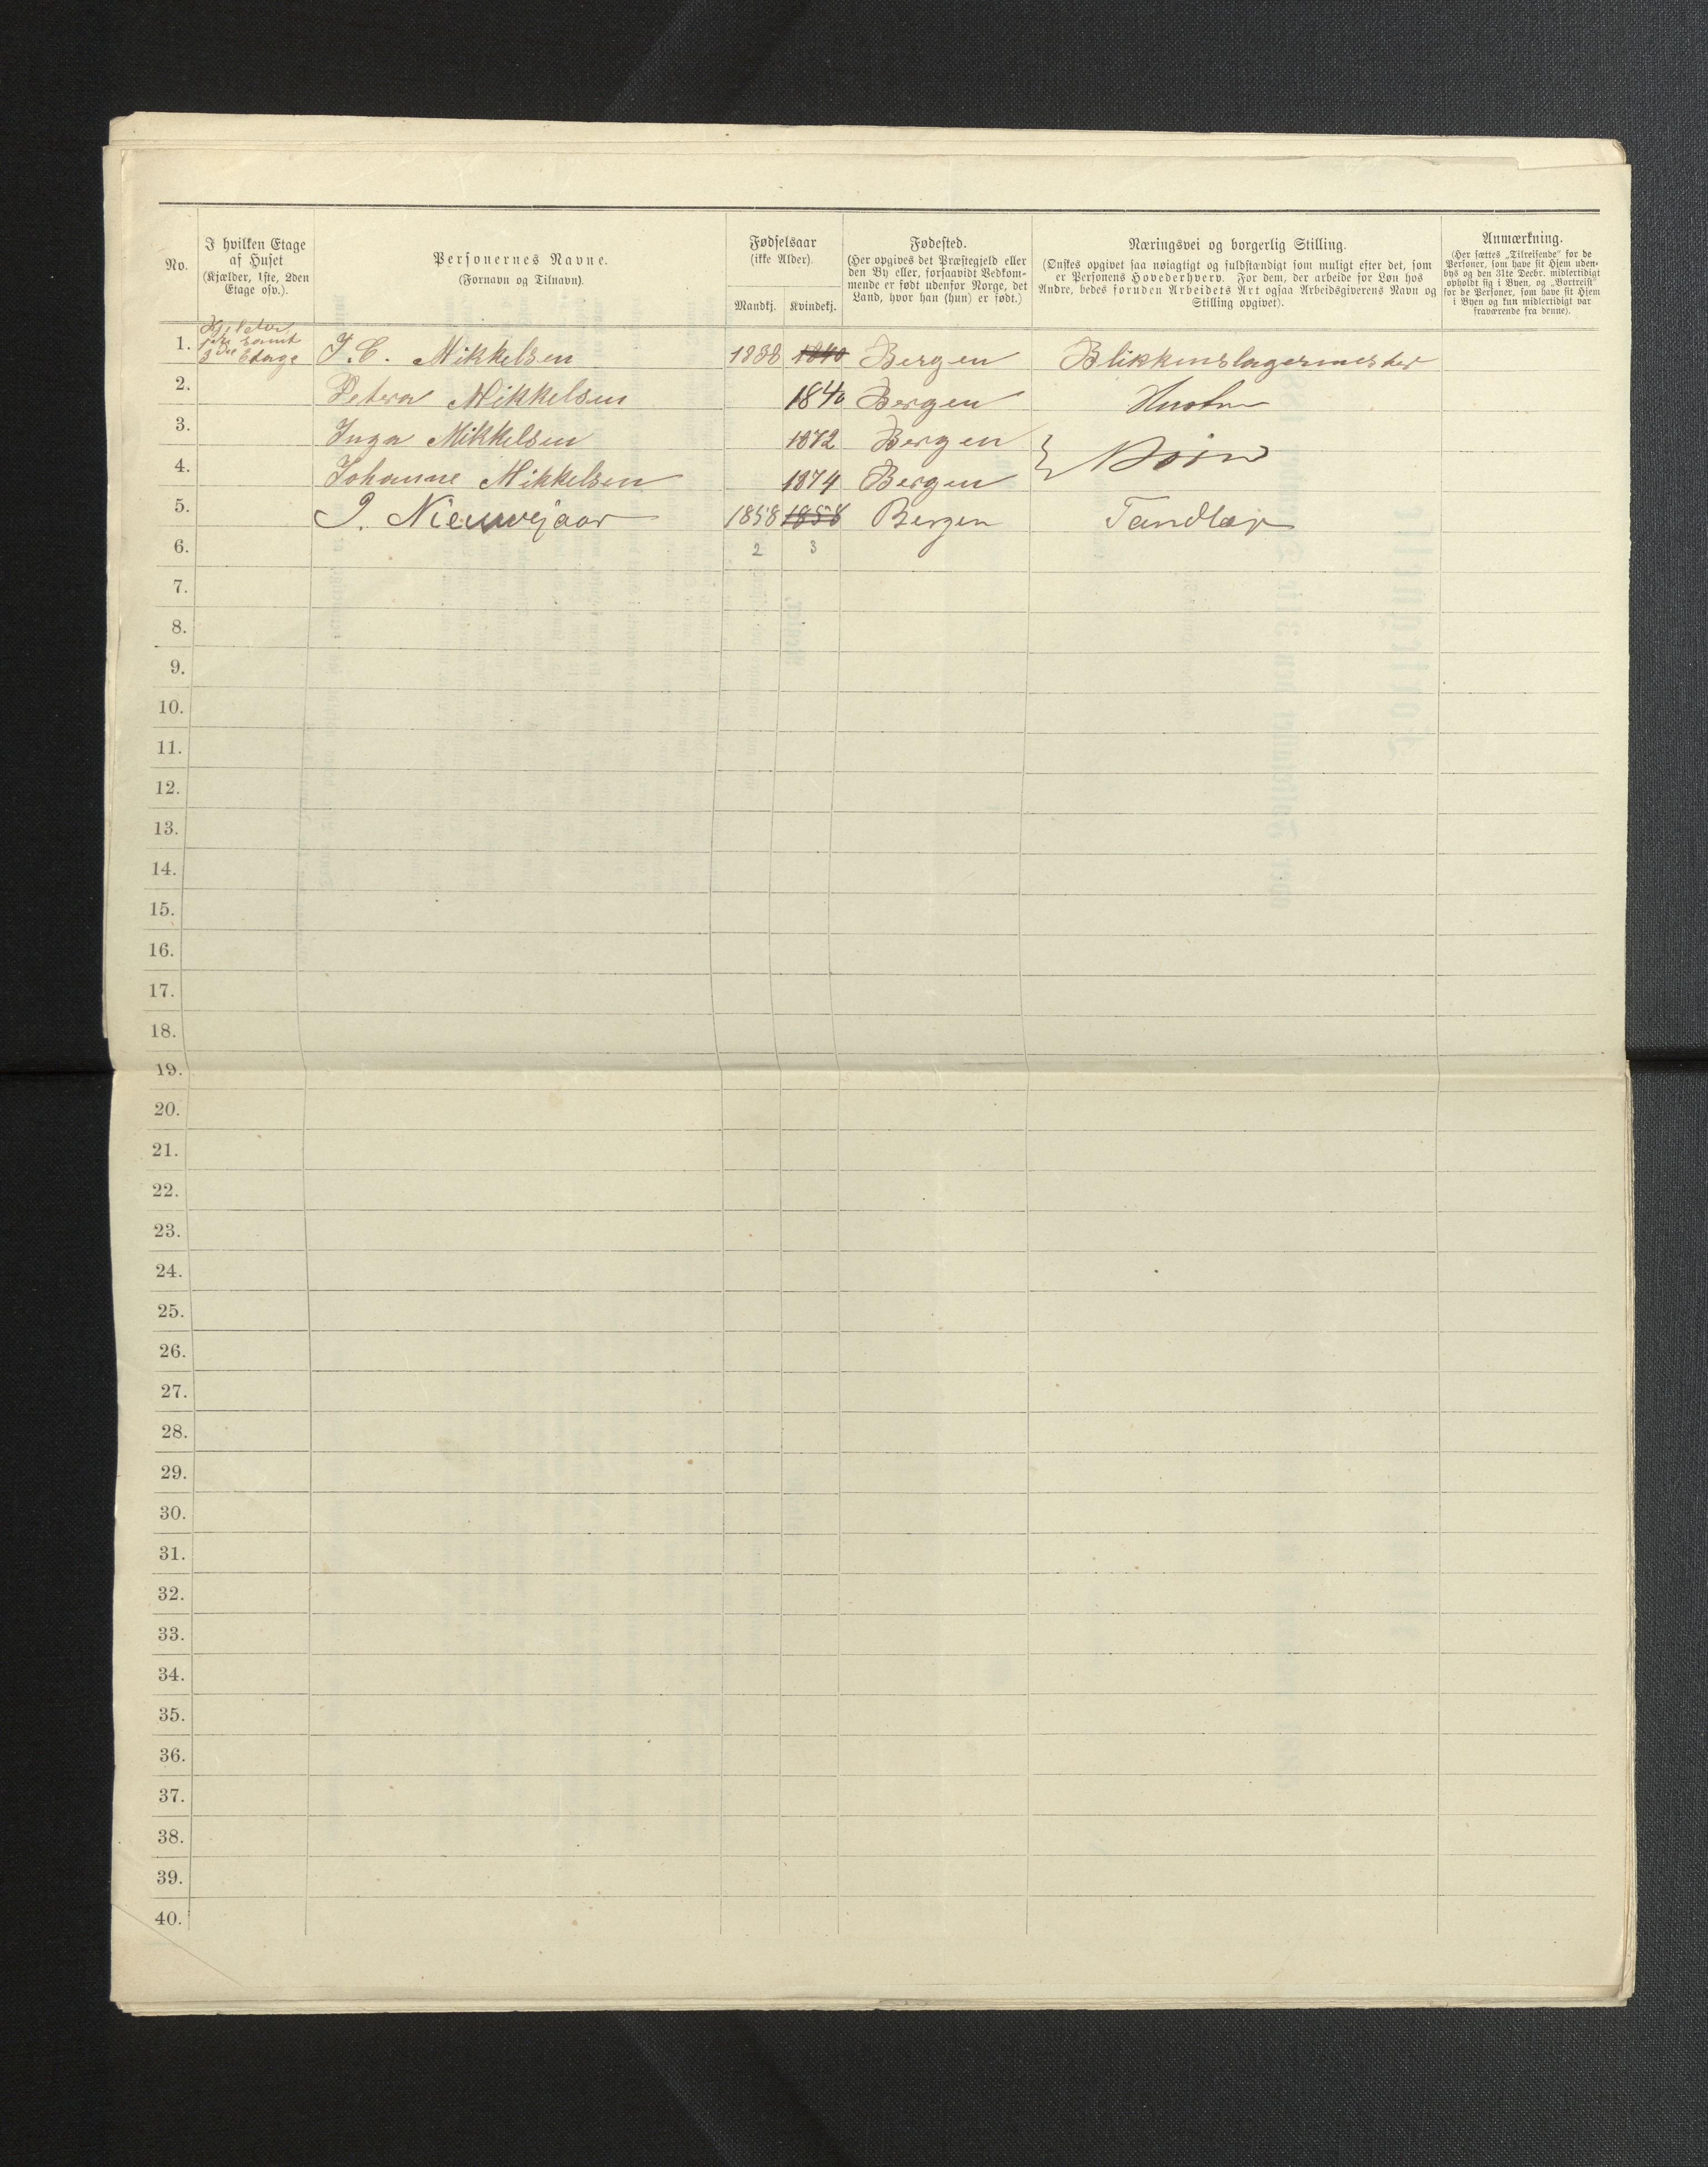 No.
I hvilken Etage af Huset (Kjælder, 1ste, 2den Etage osv.).
Personernes Navne. (Fornavn og Tilnavn).
Fødselsaar (ikke Alder).
Mandkj. Kvindekj.
Fødested. (Her opgives det Præstegjeld eller den By eller, forsaavidt Vedkommende er født udenfor Norge, det Land, hvor han (hun) er født.)
Næringsvei og borgerlig Stilling. (Ønskes opgivet saa nøiagtigt og fuldstændigt som muligt efter det, som er Personens Hovederhverv. For dem, der arbeide for Løn hos Andre, bedes foruden Arbeidets Art ogsaa Arbeidsgiverens Navn og Stilling opgivet).
Anmærkning. (Her sættes „Tilreisende" for de Personer, som have sit Hjem udenbys og den 31te Decbr. midlertidigt opholdt sig i Byen, og „Bortreist" for de Personer, som have sit Hjem i Byen og kun midlertidigt var fraværende fra denne).
1. samt Etage J. C. Mikkelsen 1838 1840 Bergen Blikkenslagermester
2. Petra Mikkelsen 1840 Bergen Hustru
3. Inga Mikkelsen 1872 Bergen
4. Johanne Mikkelsen 1874 Bergen } Børn
5. J. Nieuwejaar 1858 1858 Bergen Tandlæge
6. 2 3
7.
8.
9.
10.
11.
12.
13.
14.
15.
16.
17.
18.
19.
20.
21.
22.
23.
24.
25.
26.
27.
28.
29.
30.
31.
32.
33.
34.
35.
36.
37.
38.
39.
40.